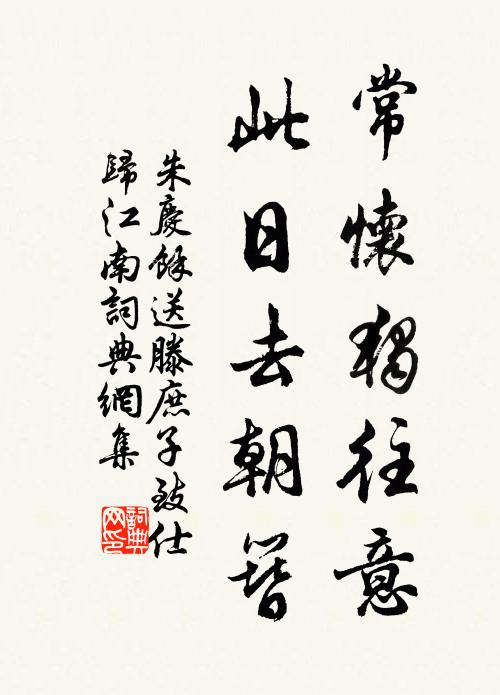 常懷獨往意
此日去朝簪
朱慶餘送滕庶子致仕
歸江南詞典網集
詞典
网印